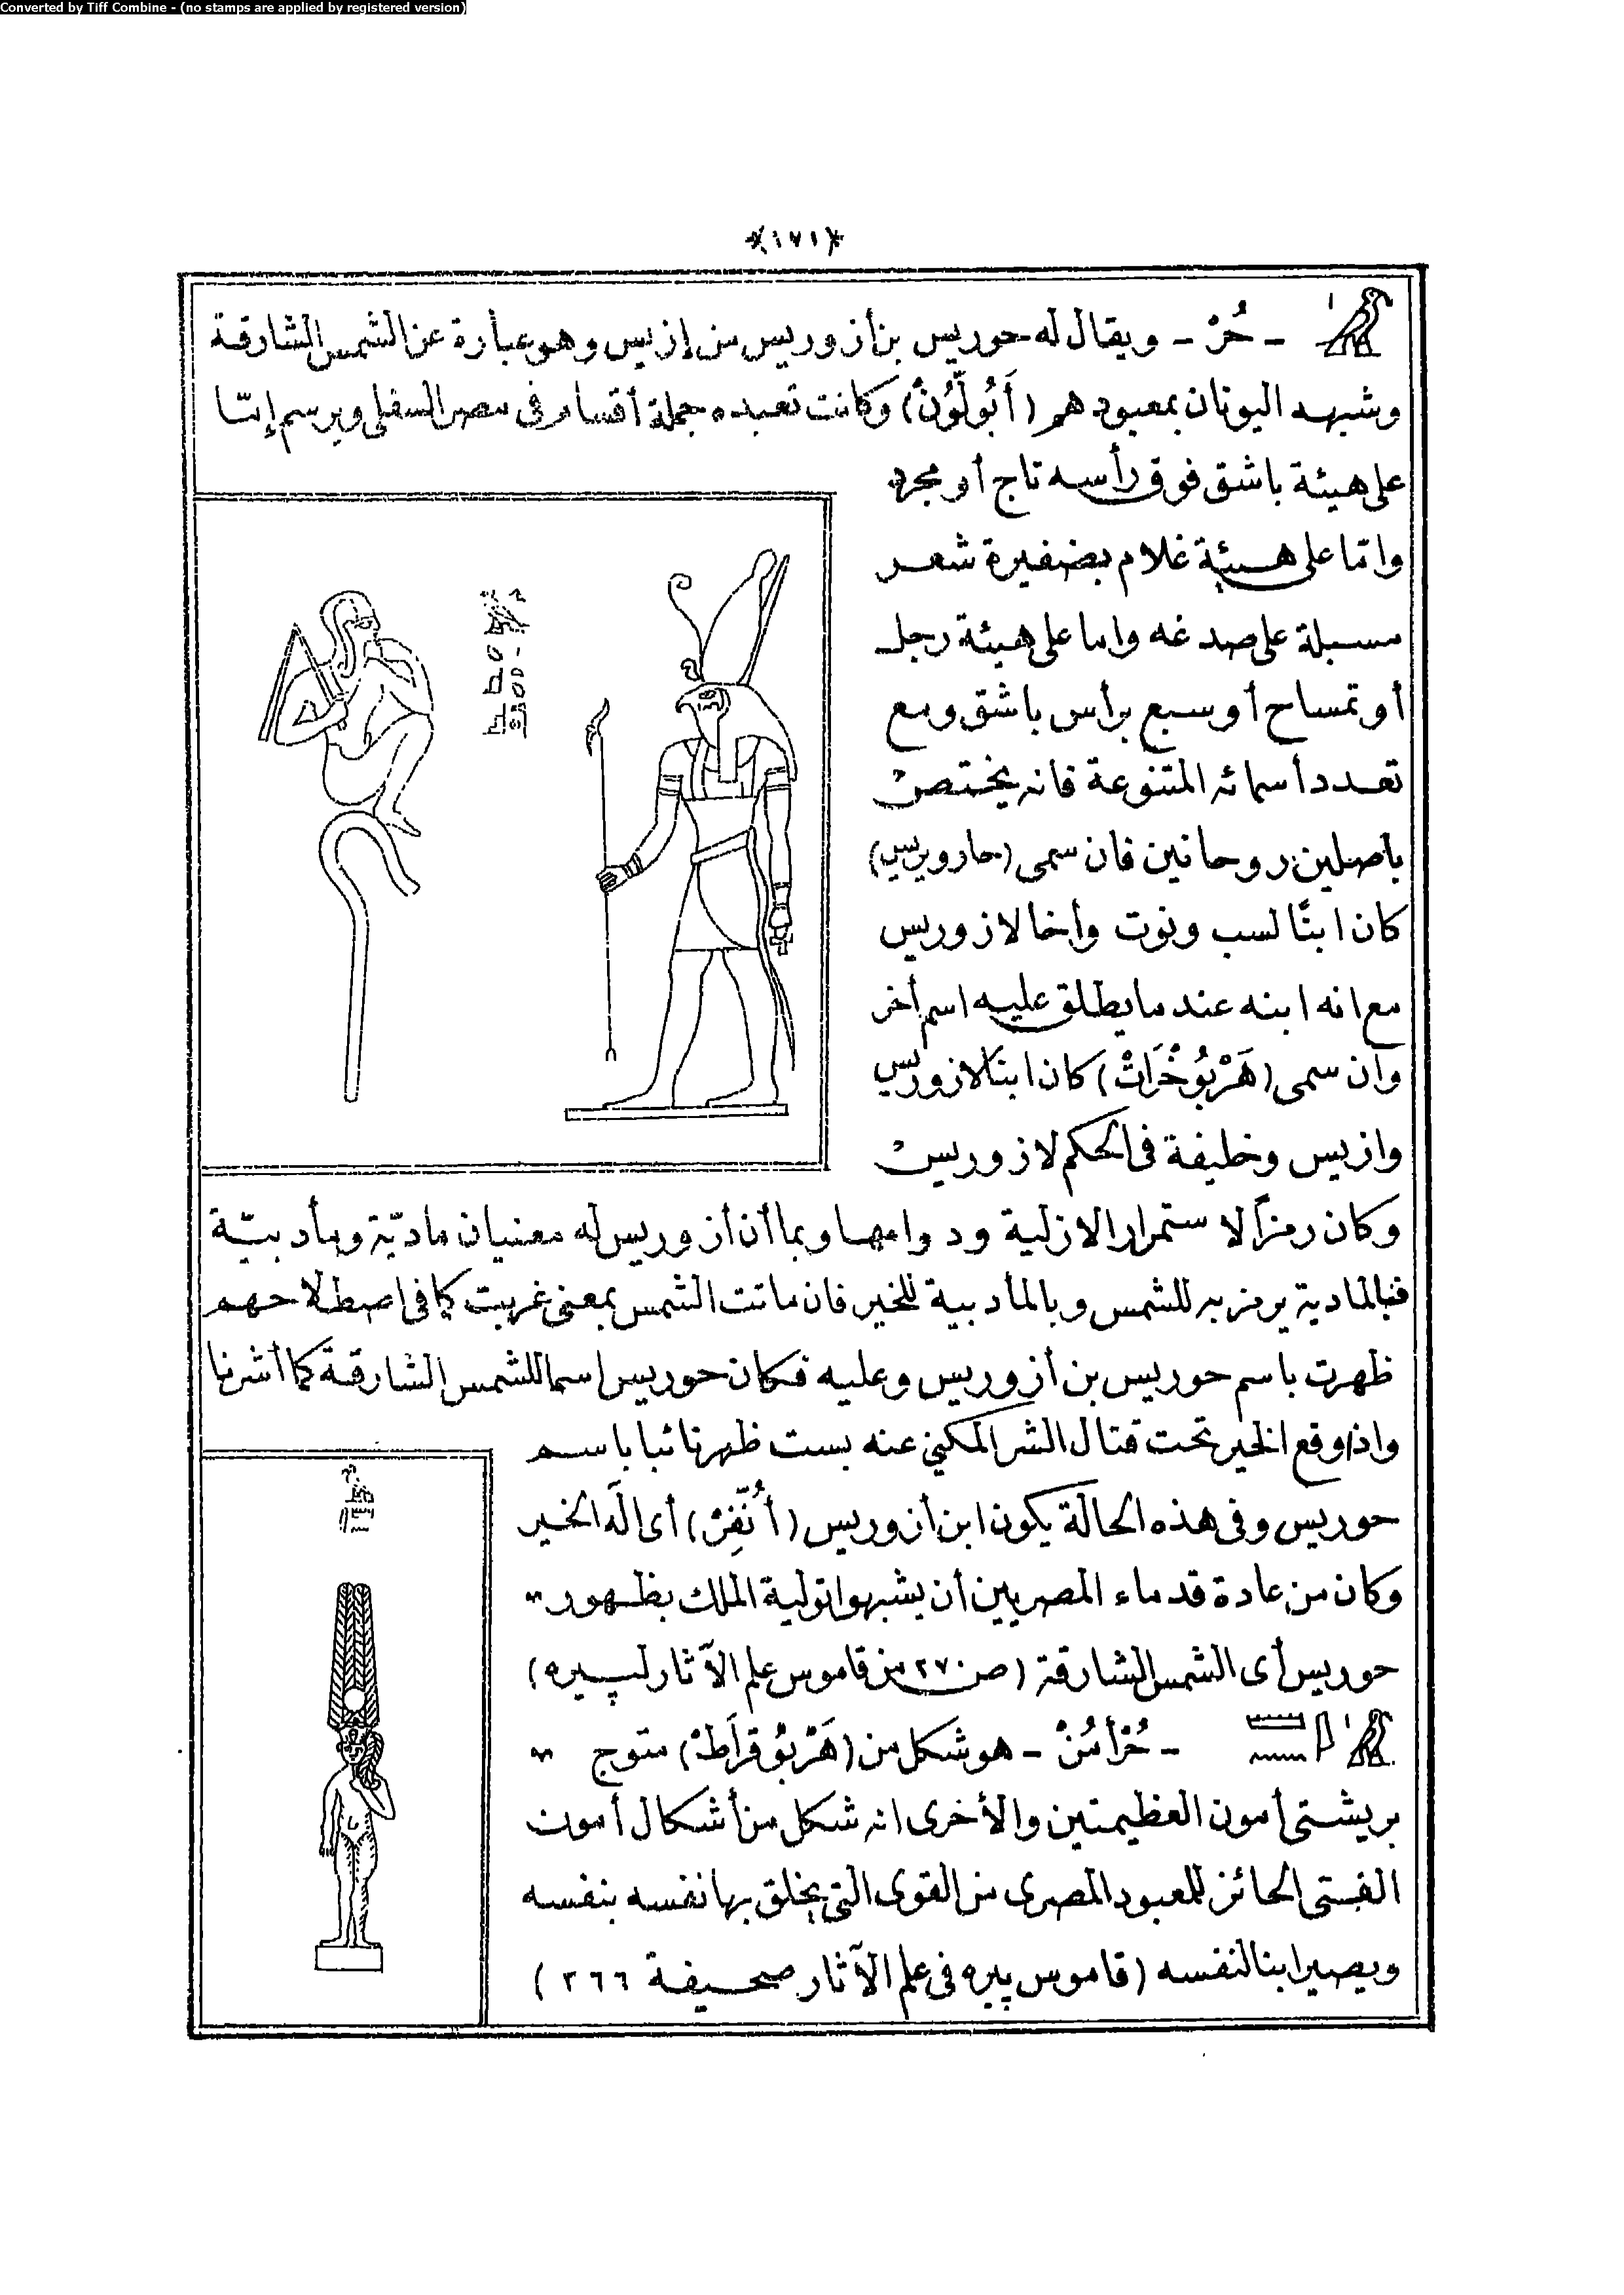 Converted by Tiff Combine - (no stamps are applied by registered version)
﴿١٧١﴾
- حُرْ - ويقال له حوريس بن أزوريس من إزيس وهو عبارة عن الشمس الشارقة
وشبهه اليونان بمعبودهم (أَبُولّوُنْ) وكانت تعبده جملة أقسام فى مصر السفلى ويرسم إمّا
على هيئة باشق فوق رأسه تاج أو مجرد
وامّا على هيئة غلام بضفيرة شعر
مسبلة على صدغه واما على هيئة رجل
أو تمساح أو سبع برأس باشق ومع
تعدد أسمائه المتنوعة فانه يختص
باصلين روحانين فان سمى (حارويريس)
كان ابنًا لسب ونوت وأخا لازوريس
مع انه ابنه عند ما يطلق عليه اسم أخر
وان سمى (هَرْبُوخُرَاتْ) كان ابنًا لازوريس
وازيس وخليفة فى الحكم لازوريس
وكان رمزاً لاستمرار الازلية ودوامها وبما أن أزوريس له معنيان ماديّة ومأدبيّة
فبالمادية يرمز به للشمس وبالمأدبية للخير فان ماتت الشمس بمعنى غربت كما فى اصطلاحهم
ظهرت باسم حوريس بن أزوريس وعليه فكان حوريس اسما للشمس الشارقة كما أشرنا
واذا وقع الخير تحت قتال الشر المكنى عنه بست ظهر نائبا باسم
حوريس وفى هذه الحالة يكون ابن أزوريس (أُنّفِرْ) أى اله الخير
وكان من عادة قدماء المصريين أن يشبهوا تولية الملك بظهور
حوريس أى الشمس الشارقة (ص ٢٧٠ من قاموس علم الآثار لپيره)
- حُرْأَمُنْ - هو شكل من (هَرْبُوقَراَطْ) متوج
بريشتى أمون العظيمتين والأخرى انه شكل من أشكال أمون
الفستى الحائز للمعبود المصرى من القوى التى يخلق بها نفسه بنفسه
ويصير ابنا لنفسه (قاموس پيره فى علم الآثار صحيفة ٢٦٦)